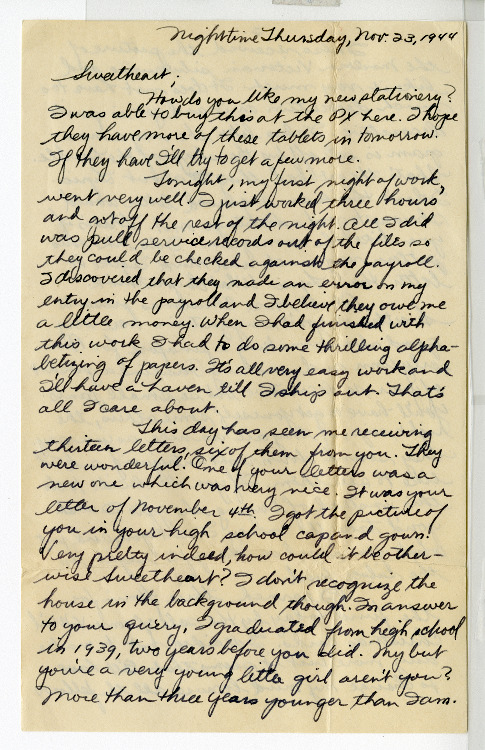 Nighttime Thursday, Nov. 23, 1944
Sweetheart;
How do you like my new stationery?
I was able to buy this at the PX here. I hope
they have more of these tablets in tomorrow.
If they have I'll try to get a few more.
Tonight, my first night of work,
went very well. I just worked three hours
and got off the rest of the night. All I did
was pull service records out of the files so
they could be checked against the payroll.
I discovered that they made an error on my
entry in the payroll and I believe they owe me
a little money. When I had finished with
this work I had to do some thrilling alpha-
betizing of papers. It's all very easy work and
I'll have a haven till I ship out. That's
all I care about.
This day has seen me receiving
thirteen letters, six of them from you. They
were wonderful. One of your letters was a
new one which was very nice. It was your
letter of November 4th. I got the picture of
you in your high school cap and gown.
Very pretty indeed, how could it be other-
wise Sweetheart? I don't recognize the
house in the background though. In answer
to your query, I graduated from high school
in 1939, two years before you did. My but
you're a very young little girl aren't you?
More than three years younger than I am.